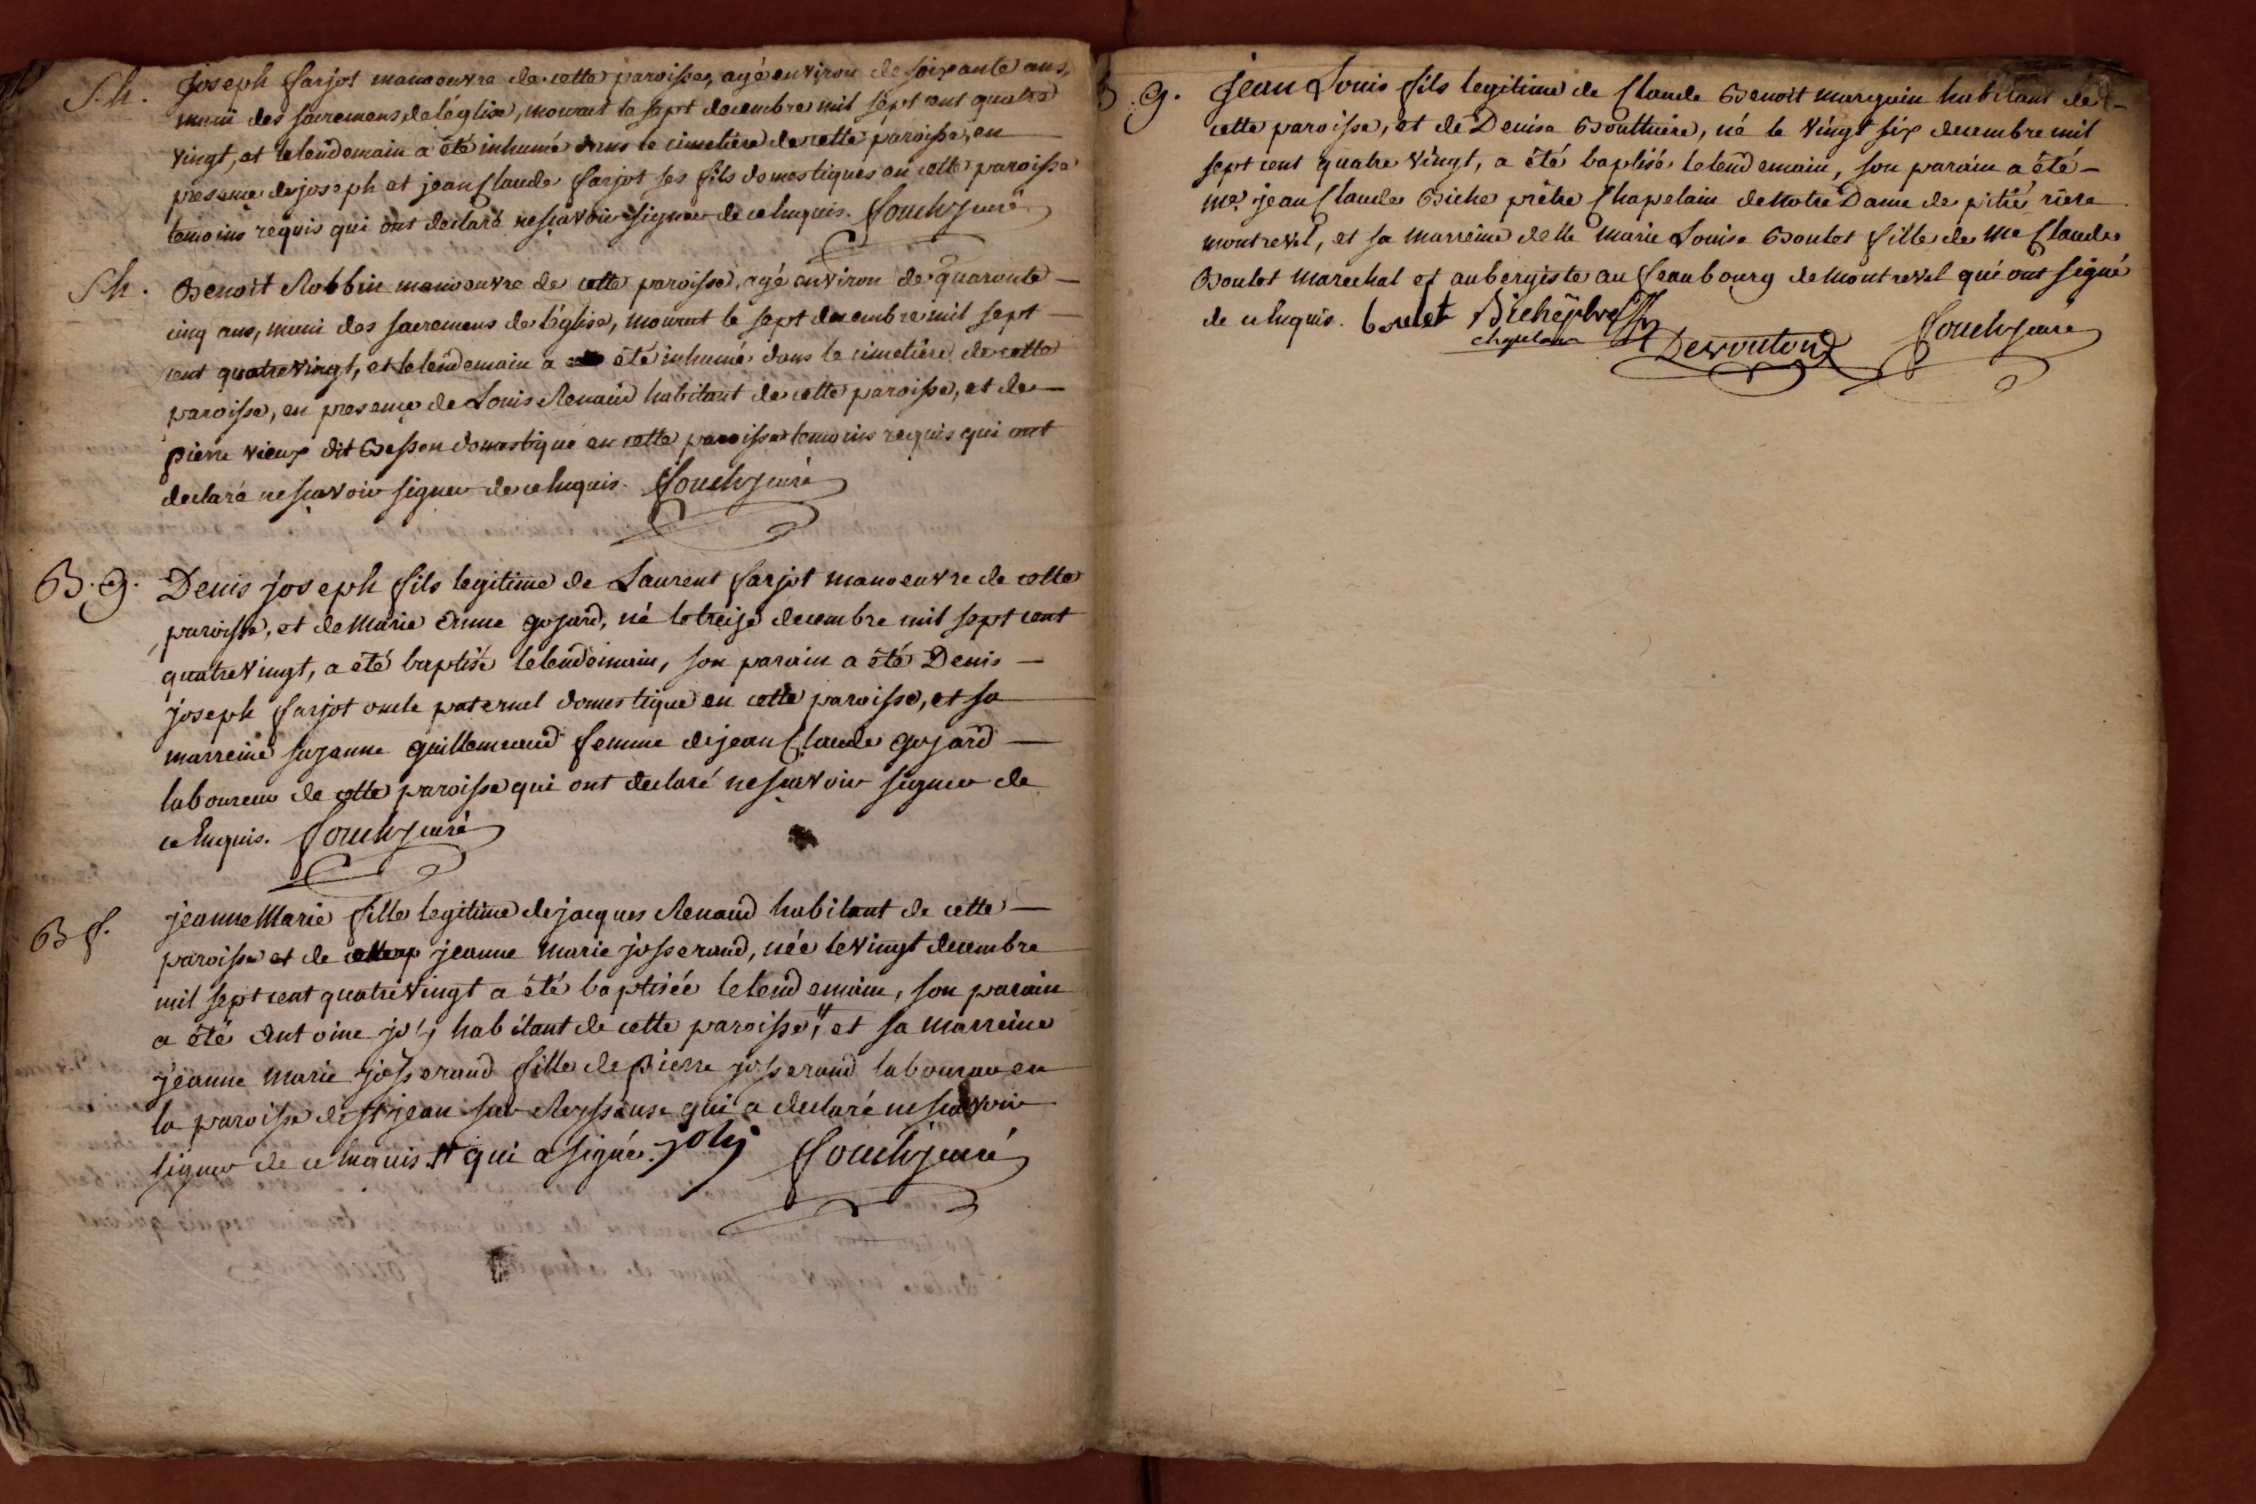 S.h. Joseph farjot manoeuvre de cette paroisse, agé environ de soixante ans,
muni des sacremens de l'église, mourut le sept decembre mil sept cent quatre
vingt, et le lendemain a été inhumé dans le cimetière de cette paroisse, en
presence de joseph et jean Claude farjot ses fils domestiques en cette paroisse
temoins requis qui ont declaré ne sçavoir signer de ce enquis. curé
S.h. Benoit Robbin manoeuvre de cette paroisse, agé environ de quarante
cinq ans, muni des sacremens de l'église, mourut le sept decembre mil sept
cent quatre vingt, et le lendemain a été inhumé dans le cimetière de cette
paroisse, en presence de Louis Renaud habitant de cette paroisse, et de
pierre vieux dit Besson domestique en cette paroisse temoins requis qui ont
declaré ne sçavoir signer de ce enquis. curé
B.g. Denis joseph fils legitime de Laurent farjot manoeuvre de cette
paroisse, et de Marie Anne gojard, né le treize decembre mil sept cent
quatre vingt, a été baptisé le lendemain, son parain a été Denis
joseph farjot oncle paternel domestique en cette paroisse, et sa
marreine suzanne guillemaud femme de jean Claude gojard
laboureur de cette paroisse qui ont declaré ne sçavoir signer de
ce enquis. curé
B f. jeanne Marie fille legitime de jacques Renaud habitant de cette
paroisse et de jeanne Marie josserand, née le vingt decembre
mil sept cent quatre vingt a été baptisée le lendemain, son parain
a été Antoine joly habitant de cette paroisse, # et sa marreine
jeanne Marie josserand fille de pierre josserand laboureur en
la paroisse de St jean sur Reyssouse qui a declaré ne sçavoir
signer de ce enquis. # qui a signé. joly curé
B.g. Jean Louis fils legitime de Claude Benoit marguin habitant de
cette paroisse, et de Denise Bouthière, né le vingt six decembre mil
sept cent quatre vingt, a été baptisé le lendemain, son parain a été
Me. jean Claude Biche prêtre Chapelain de Notre Dame de pitié rière
montrevel, et sa marreine delle Marie Louise Boulet fille de Me Claude
Boulet marechal et aubergiste au feaubourg de Montrevel qui ont signé
de ce enquis. boulet Biche ptre curé
chapelain